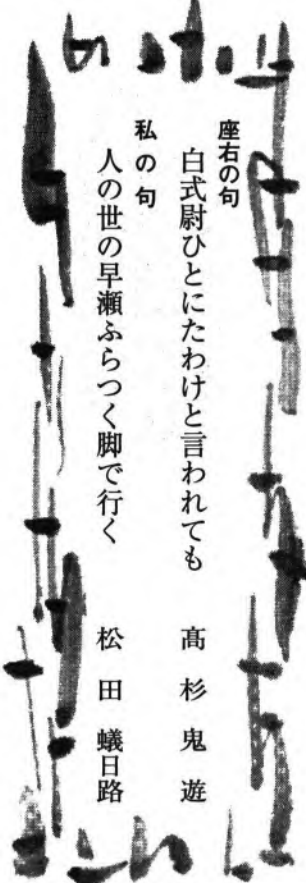 座右の句
白式尉ひとにたわけと言われても　髙杉鬼遊
私の句
人の世の早瀬ふらつく脚で行く　松田蟻日路